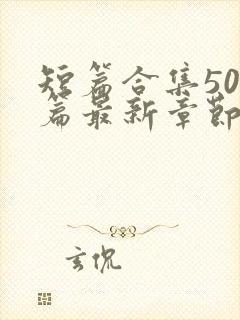 短篇合集50
篇最新章節
玄侃